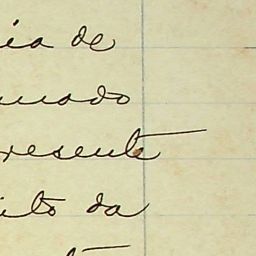 ia de
mado
resente
ito da